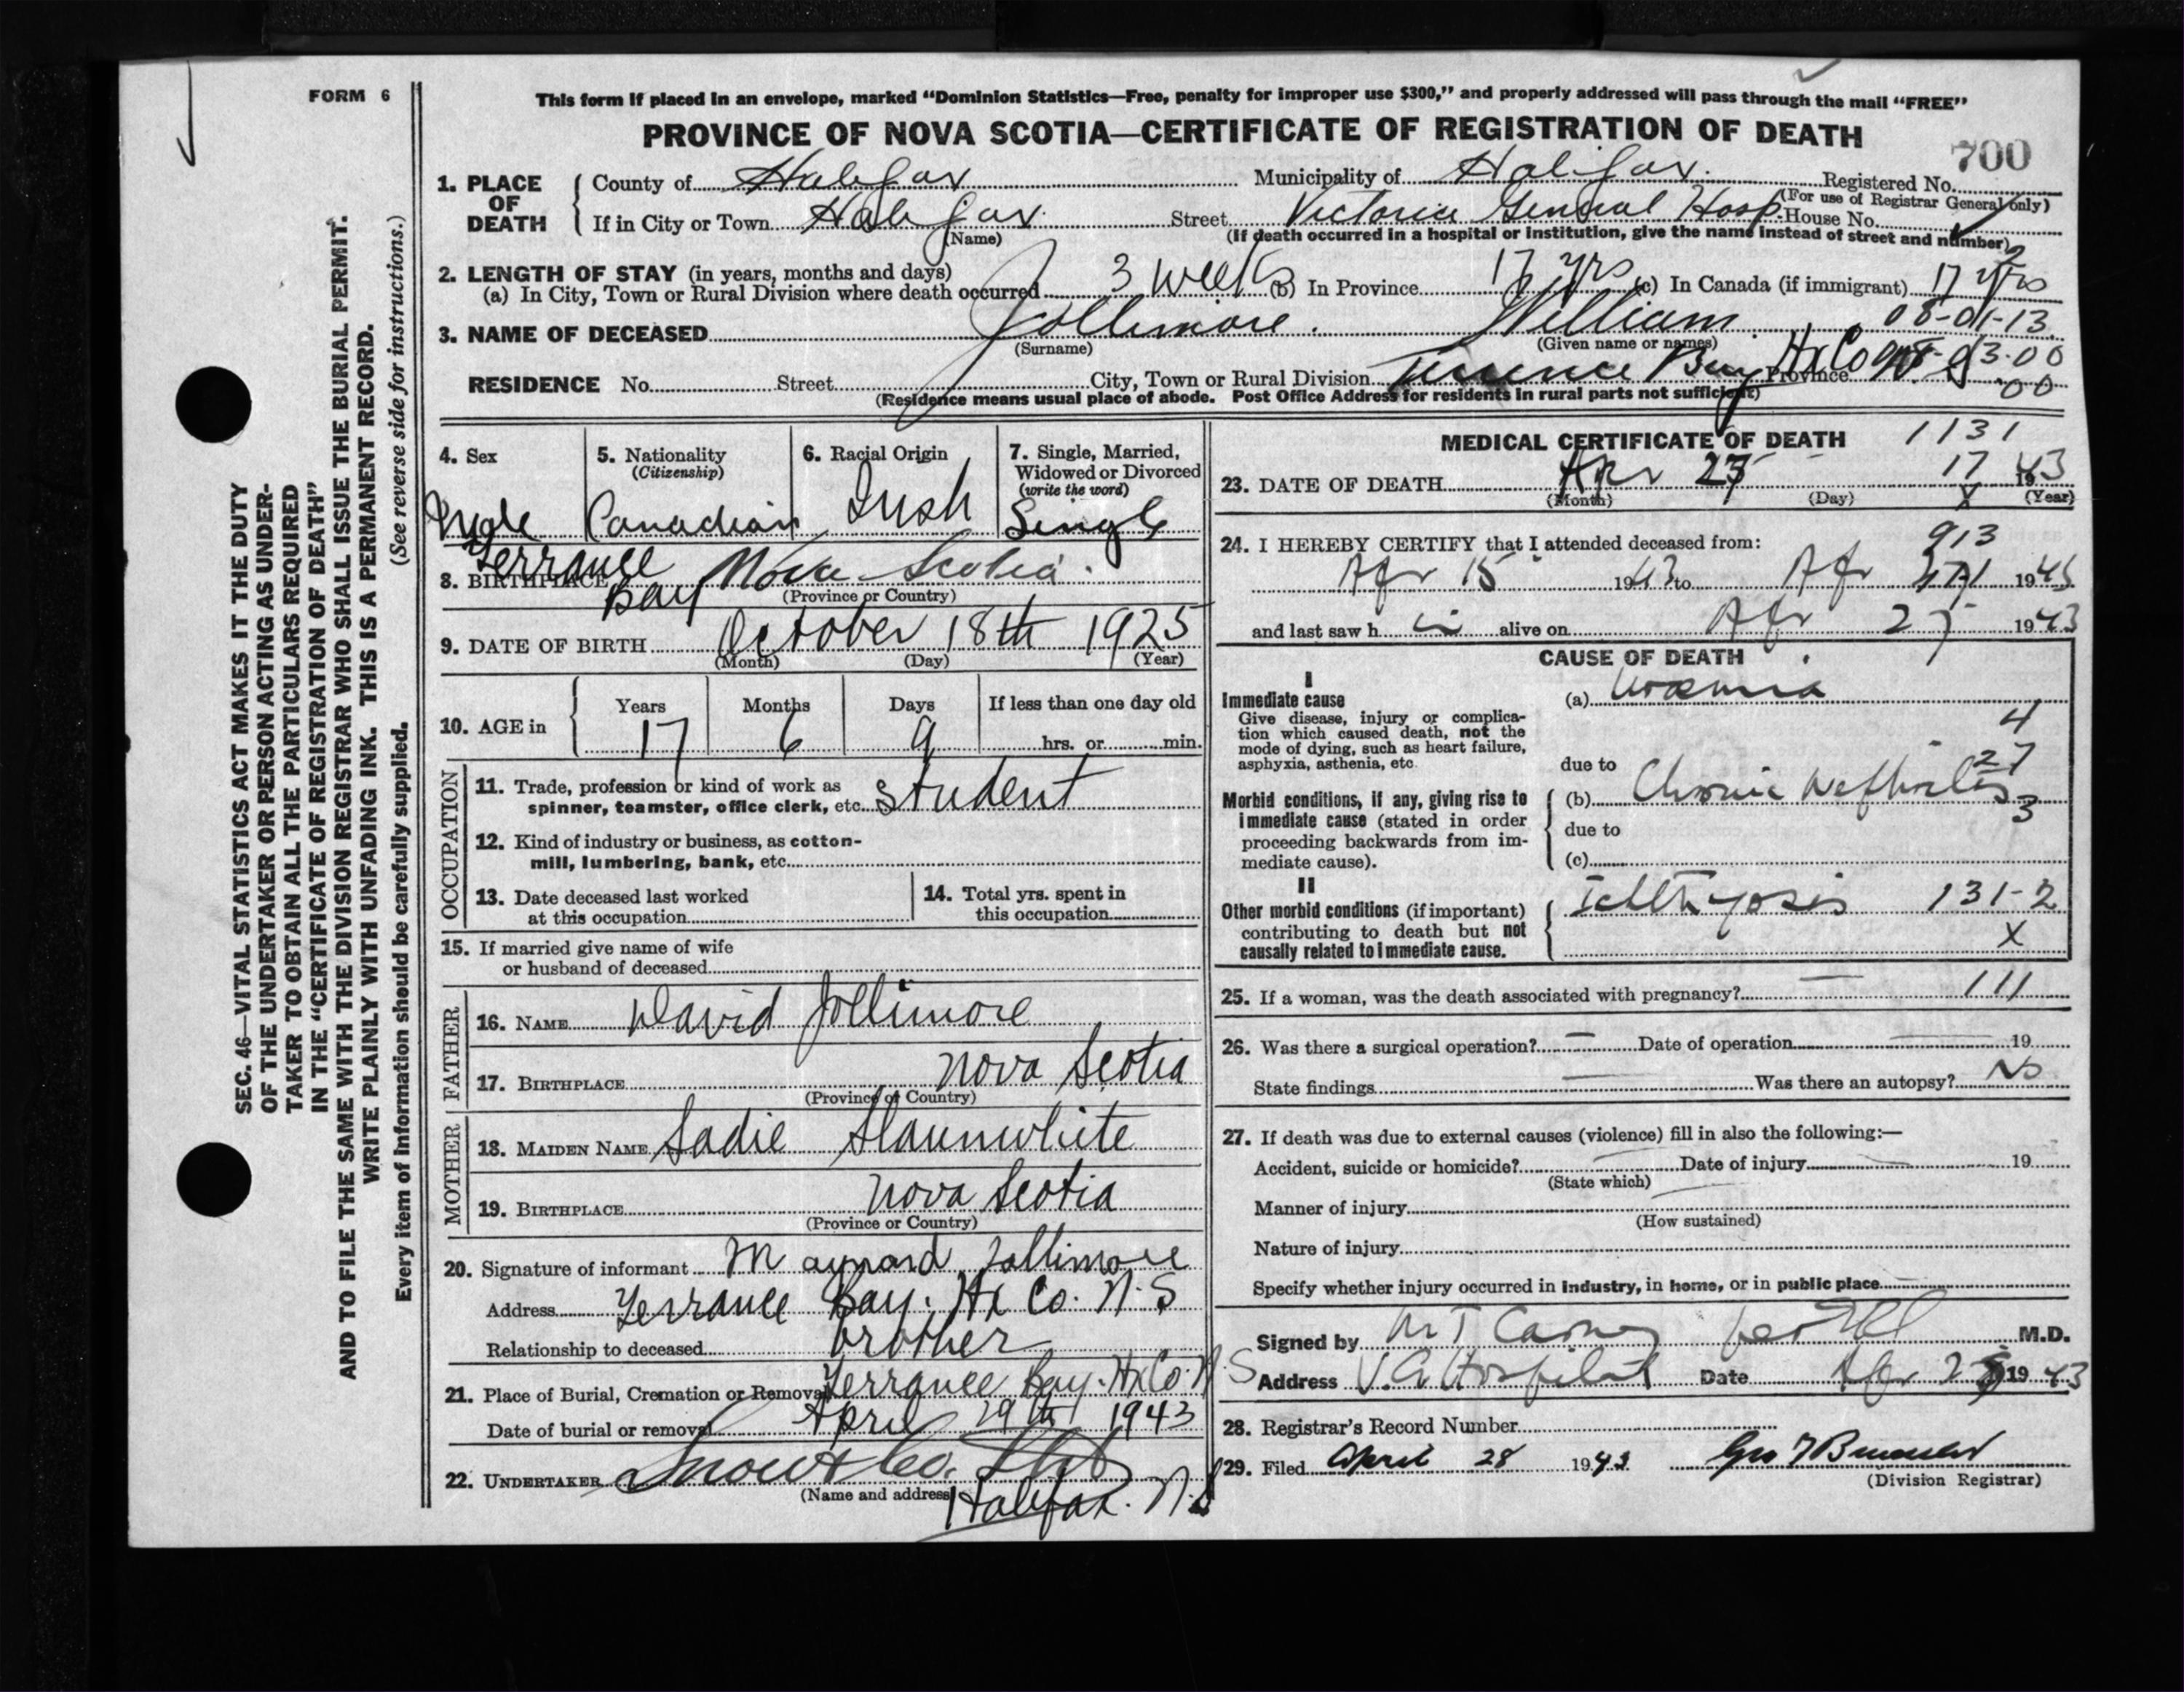 FORM 6
This form if placed in an envelope, marked “Dominion Statistics—Free, penalty for improper use $300,” and properly addressed will pass through the mail “FREE”
PROVINCE OF NOVA SCOTIA—CERTIFICATE OF REGISTRATION OF DEATH
700
1. PLACE OF DEATH
County of Halifax Municipality of Halifax. Registered No.
(For use of Registrar General only)
If in City or Town Halifax. Street Victoria General Hosp. House No.
(Name) (If death occurred in a hospital or institution, give the name instead of street and number)
2. LENGTH OF STAY (in years, months and days)
(a) In City, Town or Rural Division where death occurred 3 weeks (b) In Province 17 yrs (c) In Canada (if immigrant) 17 yrs
3. NAME OF DECEASED Jollimore. William 08-01-13
(Surname) (Given name or names)
RESIDENCE No. Street City, Town or Rural Division Terrence Bay Hx Co Province
3.00
00
(Residence means usual place of abode. Post Office Address for residents in rural parts not sufficient)
4. Sex
Male
5. Nationality
(Citizenship)
Canadian
6. Racial Origin
Irish
7. Single, Married, Widowed or Divorced
(write the word)
Single
8. BIRTHPLACE Terrance Bay Nova Scotia.
(Province or Country)
9. DATE OF BIRTH October 18th 1925
(Month) (Day) (Year)
10. AGE in
Years Months Days If less than one day old
17 6 9 hrs. or min.
OCCUPATION
11. Trade, profession or kind of work as
spinner, teamster, office clerk, etc. Student
12. Kind of industry or business, as cotton-
mill, lumbering, bank, etc.
13. Date deceased last worked
at this occupation
14. Total yrs. spent in
this occupation
15. If married give name of wife
or husband of deceased
FATHER
16. NAME David Jollimore
17. BIRTHPLACE Nova Scotia
(Province or Country)
MOTHER
18. MAIDEN NAME Sadie Slaunwhite
19. BIRTHPLACE Nova Scotia
(Province or Country)
20. Signature of informant Maynard Jollimore
Address Terrance Bay. Hx Co. N.S
Relationship to deceased brother
21. Place of Burial, Cremation or Removal Terrance Bay. Hx Co. N.S
Date of burial or removal April 29th 1943
22. UNDERTAKER Snow & Co. Ltd
(Name and address) Halifax. N.S
MEDICAL CERTIFICATE OF DEATH
1131
17
X
23. DATE OF DEATH Apr 27 1943
(Month) (Day) (Year)
24. I HEREBY CERTIFY that I attended deceased from:
913
Apr 15 1943 to Apr 1943
and last saw h im alive on Apr 27 1943
CAUSE OF DEATH
I
Immediate cause
Give disease, injury or complica-
tion which caused death, not the
mode of dying, such as heart failure,
asphyxia, asthenia, etc.
(a) Uraemia
4
27
3
due to
Morbid conditions, if any, giving rise to
immediate cause (stated in order
proceeding backwards from im-
mediate cause).
(b) Chronic Nephritis
due to
(c)
II
Other morbid conditions (if important)
contributing to death but not
causally related to immediate cause.
Ichthyosis 131-2
X
25. If a woman, was the death associated with pregnancy? — 111
26. Was there a surgical operation? — Date of operation 19
State findings — Was there an autopsy? No
27. If death was due to external causes (violence) fill in also the following:—
Accident, suicide or homicide? Date of injury 19
(State which)
Manner of injury
(How sustained)
Nature of injury
Specify whether injury occurred in industry, in home, or in public place
Signed by M.D.
Address V.G. Hospital Date Apr 1943
28. Registrar’s Record Number
29. Filed April 28 1943
(Division Registrar)
SEC. 46—VITAL STATISTICS ACT MAKES IT THE DUTY
OF THE UNDERTAKER OR PERSON ACTING AS UNDER-
TAKER TO OBTAIN ALL THE PARTICULARS REQUIRED
IN THE “CERTIFICATE OF REGISTRATION OF DEATH”
AND TO FILE THE SAME WITH THE DIVISION REGISTRAR WHO SHALL ISSUE THE BURIAL PERMIT.
WRITE PLAINLY WITH UNFADING INK. THIS IS A PERMANENT RECORD.
Every item of information should be carefully supplied. (See reverse side for instructions.)